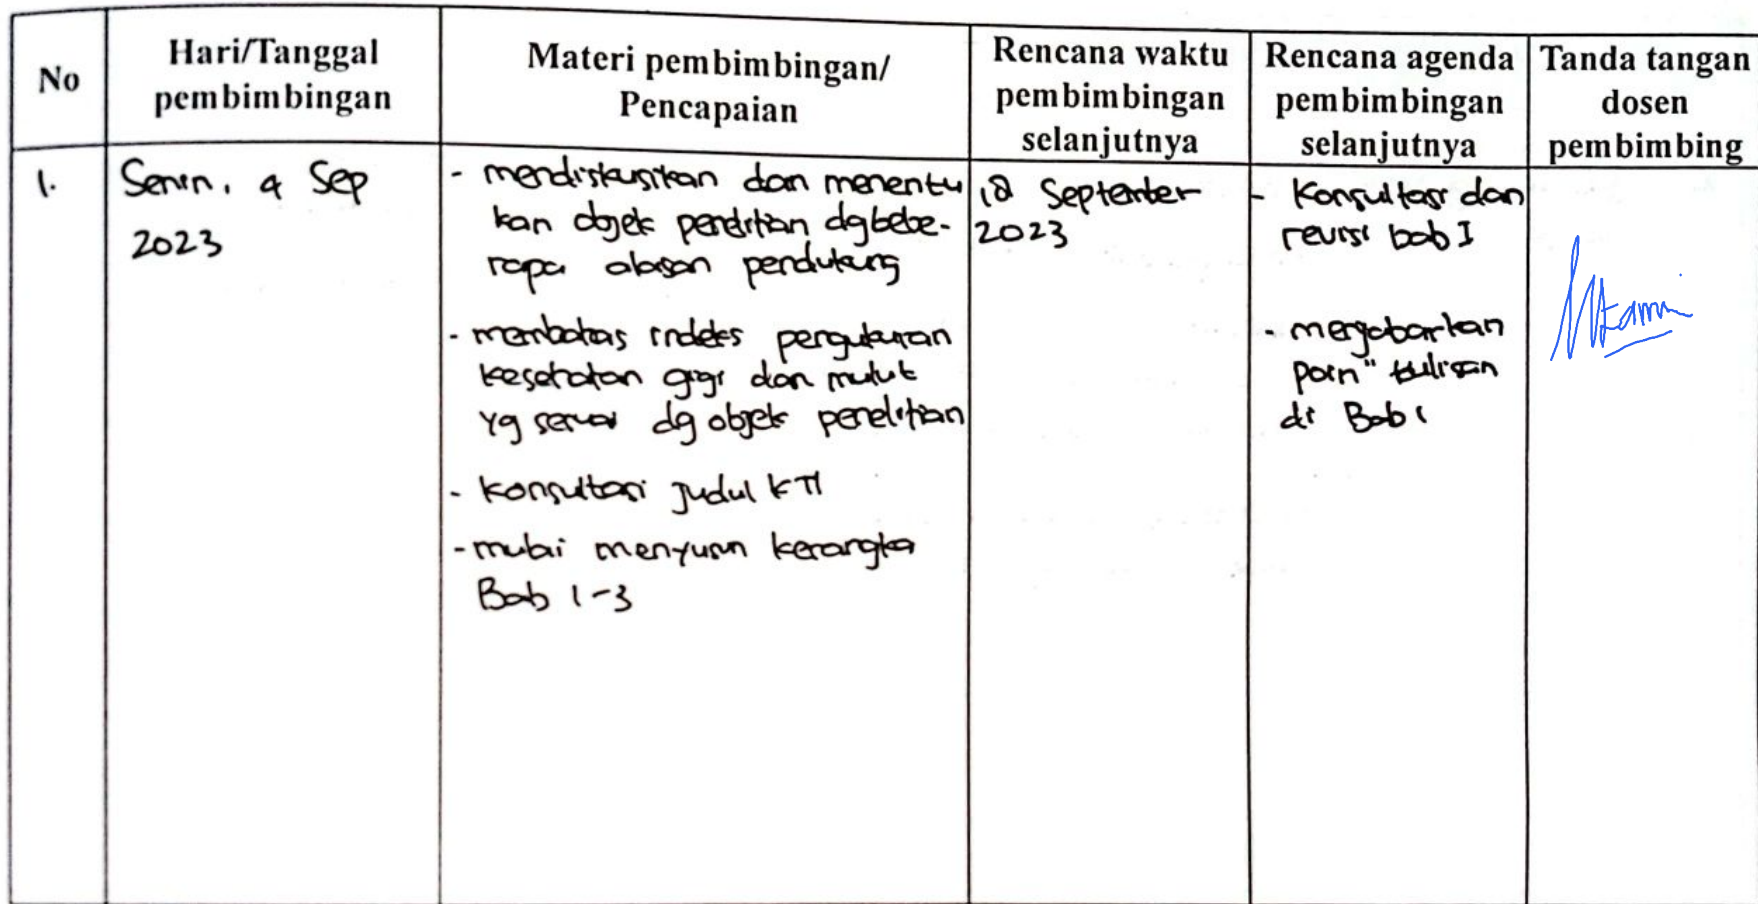 No
Hari/Tanggal
pembimbingan
Materi pembimbingan/
Pencapaian
Rencana waktu
pembimbingan
selanjutnya
Rencana agenda
pembimbingan
selanjutnya
Tanda tangan
dosen
pembimbing
1.
Senin, 4 Sep
2023
- mendiskusikan dan menentu
kan objek penelitian dg bebe-
rapa alasan pendukung
- membahas indeks pengukuran
kesehatan gigi dan mulut
yg sesuai dg objek penelitian
- konsultasi judul KTI
- mulai menyusun kerangka
Bab 1-3
18 September
2023
- Konsultasi dan
revisi bab I
- menjabarkan
poin" tulisan
di Bab 1